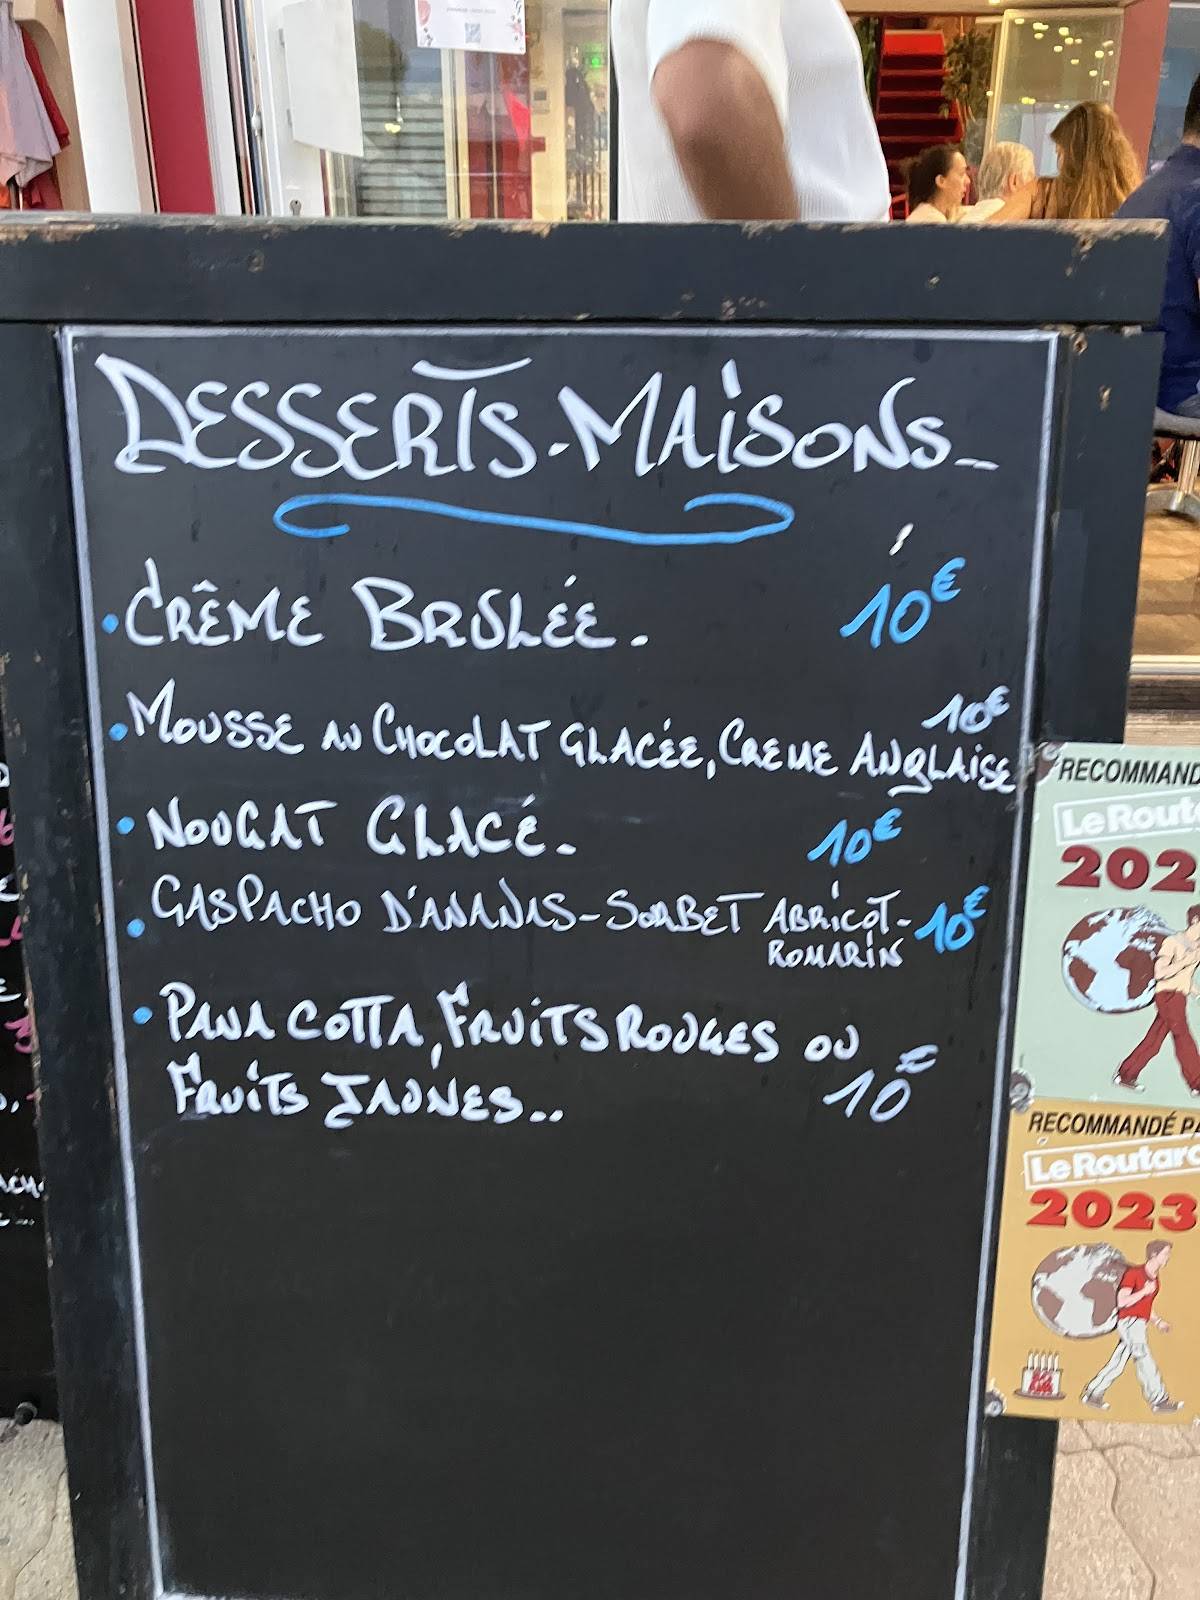 DESSERTS-MAISONS_
• CRÊME BRULÉE. 10€
• MOUSSE AU CHOCOLAT GLACÉE, CREME ANGLAISE 10€
• NOUGAT GLACÉ. 10€
• GASPACHO D'ANANAS-SORBET ABRICOT- 10€
ROMARIN
• PANA COTTA, FRUITS ROUGES OU
FRUITS JAUNES.. 10€
RECOMMAND
Le Rout
202
RECOMMANDÉ PA
Le Routard
2023